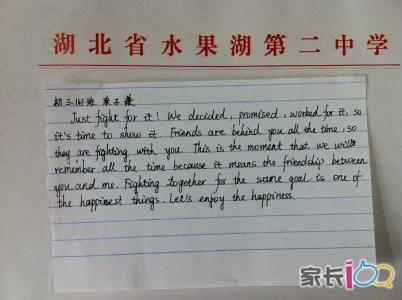 湖北省水果湖第二中学
初三
Just fight for it! We decided, promised, worked for it, so
it's time to show it. Friends are behind you all the time, so
they are fighting with you. This is the moment that we will
remember all the time because it means the friendship between
you and me. Fighting together for the same goal is one of
the happinest things. Let's enjoy the happiness.
家长100